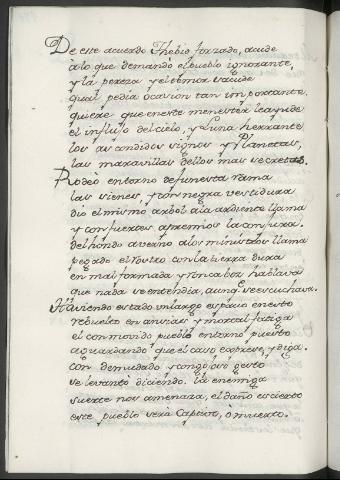 De este acuerdo Thebio forzado, acude
a lo que demandó el pueblo ignorante,
y la pereza y el temor sacude
qual pedia ocasion tan importante,
quiere que en este menester le ayude
el influjo del cielo, y Luna herrante
los ascondidos signos y Planetas,
las maravillas dellos mas secretas.
Rodeó entorno de funesta rama
las sienes, y con negra vestidura
dio el mismo arbol a la ardiente llama
y con fuertes apremios la conjura.
del hondo averno a los ministros llama
pegado el rostro con la tierra dura
en mal formada y ronca boz hablava
que nada se entendia, aunq̃ se escuchava.
Haviendo estado un largo espacio en esto
rebuelto en ansias y mortal fatiga
el conmovido pueblo entorno puesto
aguardando que el caso exprese, y diga.
con demudado y congojoso gesto
se levantó diciendo. la enemiga
suerte nos amenaza, el daño es cierto
este pueblo verá Captivo, ò muerto.